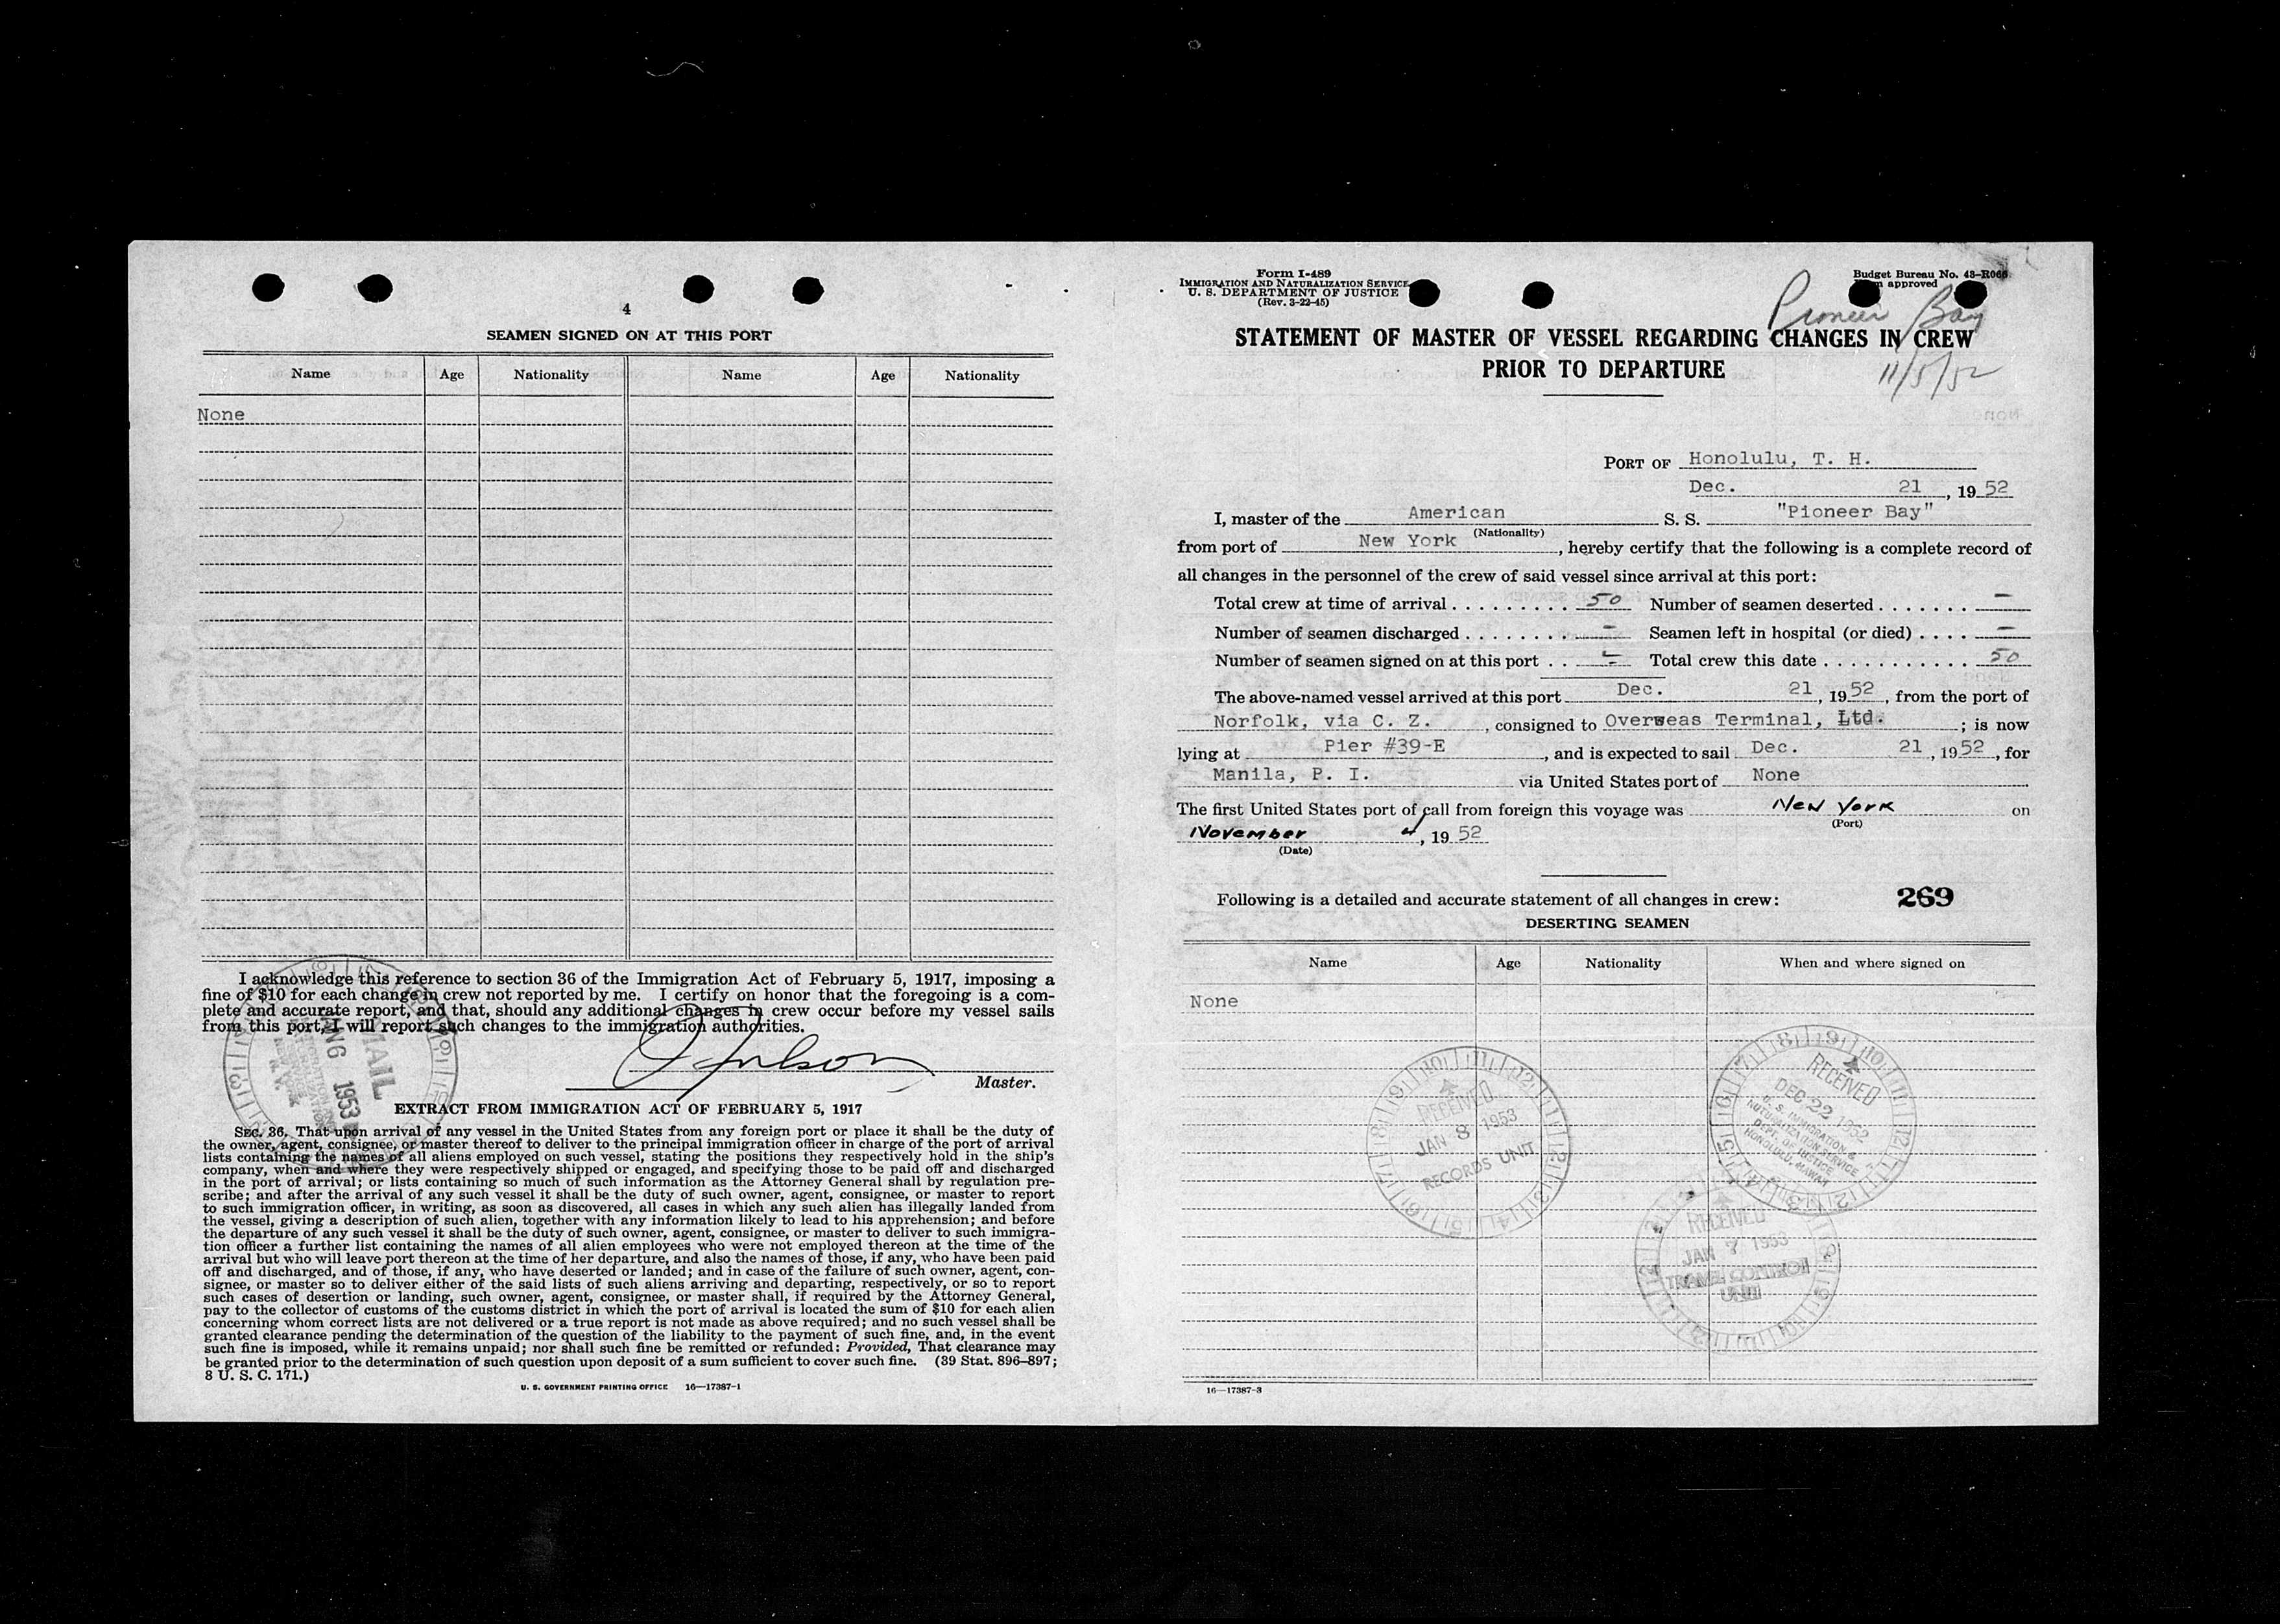 4
SEAMEN SIGNED ON AT THIS PORT
Name Age Nationality Name Age Nationality
None
I acknowledge this reference to section 36 of the Immigration Act of February 5, 1917, imposing a
fine of $10 for each change in crew not reported by me. I certify on honor that the foregoing is a com-
plete and accurate report, and that, should any additional changes in crew occur before my vessel sails
from this port, I will report such changes to the immigration authorities.
Master.
MAIL
1953
EXTRACT FROM IMMIGRATION ACT OF FEBRUARY 5, 1917
SEC. 36. That upon arrival of any vessel in the United States from any foreign port or place it shall be the duty of
the owner, agent, consignee, or master thereof to deliver to the principal immigration officer in charge of the port of arrival
lists containing the names of all aliens employed on such vessel, stating the positions they respectively hold in the ship's
company, when and where they were respectively shipped or engaged, and specifying those to be paid off and discharged
in the port of arrival; or lists containing so much of such information as the Attorney General shall by regulation pre-
scribe; and after the arrival of any such vessel it shall be the duty of such owner, agent, consignee, or master to report
to such immigration officer, in writing, as soon as discovered, all cases in which any such alien has illegally landed from
the vessel, giving a description of such alien, together with any information likely to lead to his apprehension; and before
the departure of any such vessel it shall be the duty of such owner, agent, consignee, or master to deliver to such immigra-
tion officer a further list containing the names of all alien employees who were not employed thereon at the time of the
arrival but who will leave port thereon at the time of her departure, and also the names of those, if any, who have been paid
off and discharged, and of those, if any, who have deserted or landed; and in case of the failure of such owner, agent, con-
signee, or master so to deliver either of the said lists of such aliens arriving and departing, respectively, or so to report
such cases of desertion or landing, such owner, agent, consignee, or master shall, if required by the Attorney General,
pay to the collector of customs of the customs district in which the port of arrival is located the sum of $10 for each alien
concerning whom correct lists are not delivered or a true report is not made as above required; and no such vessel shall be
granted clearance pending the determination of the question of the liability to the payment of such fine, and, in the event
such fine is imposed, while it remains unpaid; nor shall such fine be remitted or refunded: Provided, That clearance may
be granted prior to the determination of such question upon deposit of a sum sufficient to cover such fine. (39 Stat. 896–897;
8 U. S. C. 171.)
U. S. GOVERNMENT PRINTING OFFICE 16—17387-1
Form I-489
IMMIGRATION AND NATURALIZATION SERVICE
U. S. DEPARTMENT OF JUSTICE
(Rev. 3-22-45)
Budget Bureau No. 43–R066
approved
Pioneer Bay
11/5/52
STATEMENT OF MASTER OF VESSEL REGARDING CHANGES IN CREW
PRIOR TO DEPARTURE
PORT OF Honolulu, T. H.
Dec. 21, 1952
I, master of the American S. S. "Pioneer Bay"
(Nationality)
from port of New York, hereby certify that the following is a complete record of
all changes in the personnel of the crew of said vessel since arrival at this port:
Total crew at time of arrival 50 Number of seamen deserted –
Number of seamen discharged – Seamen left in hospital (or died) –
Number of seamen signed on at this port – Total crew this date 50
The above-named vessel arrived at this port Dec. 21, 1952, from the port of
Norfolk, via C. Z., consigned to Overseas Terminal, Ltd.; is now
lying at Pier #39-E, and is expected to sail Dec. 21, 1952, for
Manila, P. I. via United States port of None
The first United States port of call from foreign this voyage was New York on
(Port)
November 4, 1952
(Date)
Following is a detailed and accurate statement of all changes in crew: 269
DESERTING SEAMEN
Name Age Nationality When and where signed on
None
RECEIVED
JAN 8 1953
RECORDS UNIT
RECEIVED
DEC 22 1952
U. S. IMMIGRATION &
NATURALIZATION SERVICE
DEPT. OF JUSTICE
HONOLULU, HAWAII
RECEIVED
JAN 7 1953
TRAVEL CONTROL
UNIT
16—17387-3